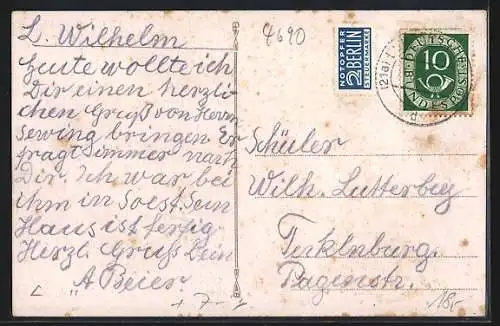 L. Wilhelm
heute wollte ich
Dir einen herzli-
chen Gruß von Herrn
Sewing bringen Er
fragt immer nach
Dir. Ich war bei
ihm in Soest. Sein
Haus ist fertig
Herzl. Gruß Dein
A Beier
4690
NOTOPFER
2 BERLIN
STEUERMARKE
DEUTSCHE BUNDESPOST
10
(21a)
Schüler
Wilh. Lutterbey
Tecklenburg.
Pagenstr.
+ 7-
18,-